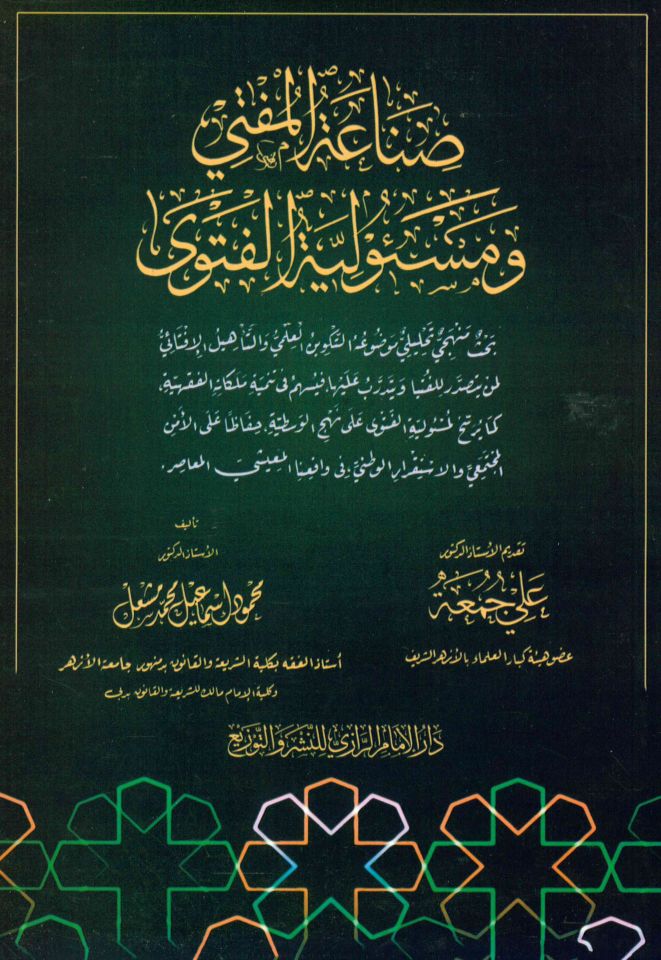 صِنَاعَةُ الْمُفْتِي
وَمَسْئُولِيَّةُ الْفَتْوَى
بحثٌ منهجيٌّ تحليليٌّ موضوعُه التكوين العلمي والتأهيل الإفتائي
لمن يتصدر للفتيا ويتدرب عليها، فيسهم في تنمية ملكاته الفقهية،
كما يرسخ لمسئولية الفتوى على نهج الوسطية، حفاظًا على الأمن
المجتمعي والاستقرار الوطني، في واقعنا المعيشي المعاصر.
تقديم الأستاذ الدكتور
علي جمعة
عضو هيئة كبار العلماء بالأزهر الشريف
تأليف
الأستاذ الدكتور
محمود إسماعيل محمد مشعل
أستاذ الفقه بكلية الشريعة والقانون بدمنهور جامعة الأزهر
وكلية الإمام مالك للشريعة والقانون بدبي
دار الإمام الرازي للنشر والتوزيع